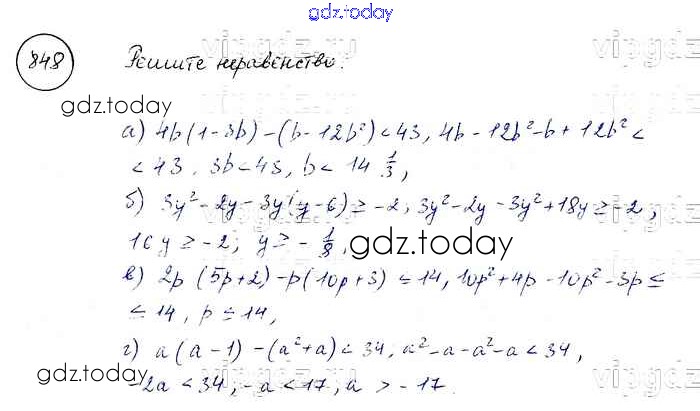 gdz.today
848 Решите неравенство:
vipgdz
gdz.today
а) 4b(1-3b)-(b-12b²)<43, 4b-12b²-b+12b²<
<43, 3b<43, b<14 1/3,
б) 3y²-2y-3y(y-6)≥-2, 3y²-2y-3y²+18y≥-2,
16y≥-2; y≥-1/8,
gdz.today
в) 2p(5p+2)-p(10p+3)≤14, 10p²+4p-10p²-3p≤
≤14, p≤14,
г) a(a-1)-(a²+a)<34, a²-a-a²-a<34,
gdz.today
-2a<34, -a<17, a>-17.
vipgdz